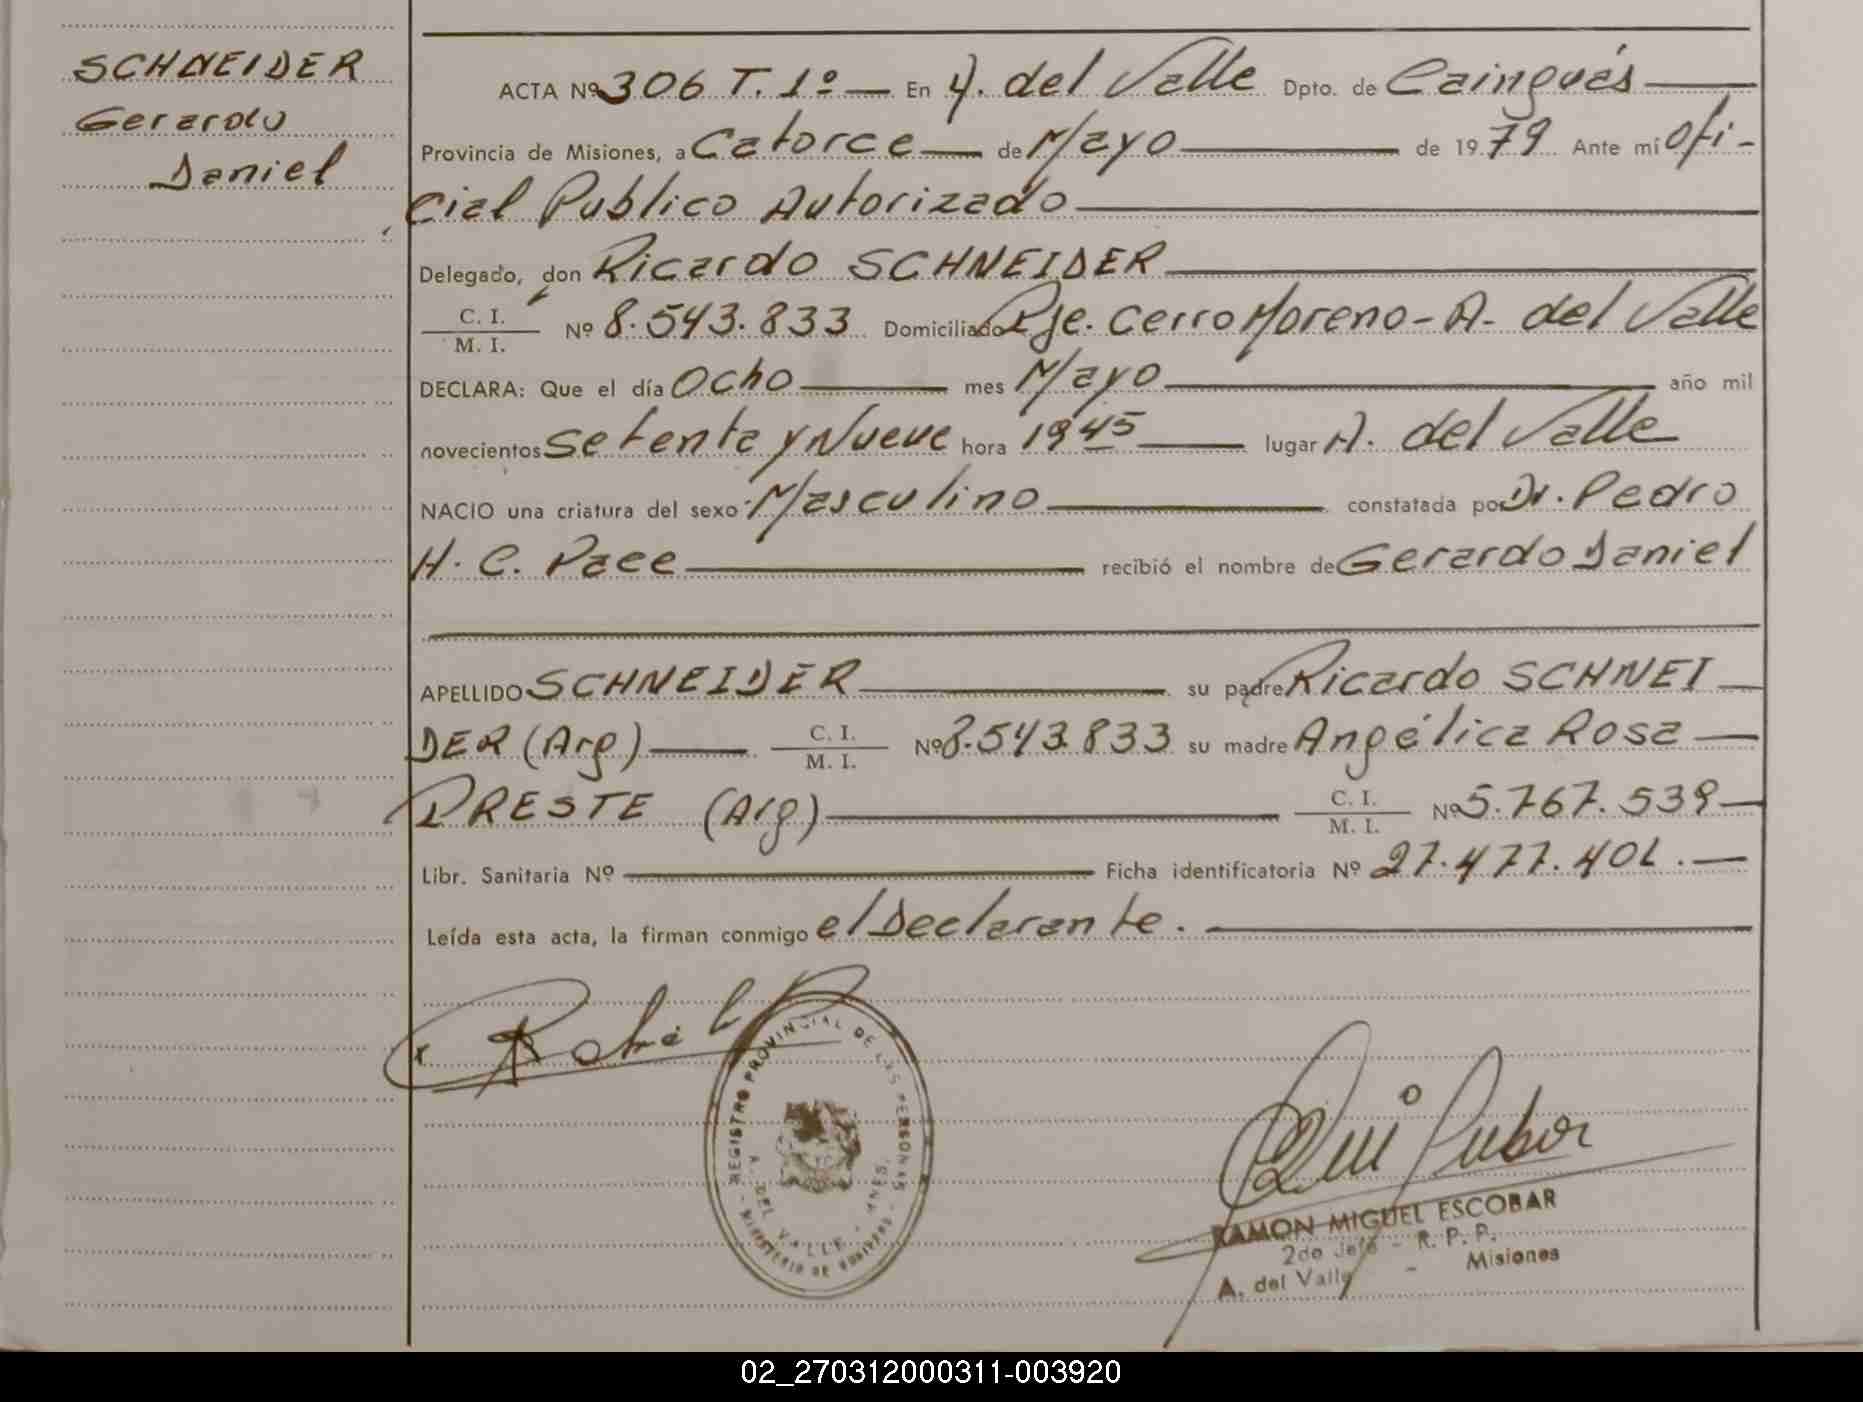 SCHNEIDER
Gerardo
Daniel
ACTA Nº 306 T. 1º — En A. del Valle Dpto. de Cainguás
Provincia de Misiones, a Catorce de Mayo de 1979 Ante mí Ofi-
cial Publico Autorizado
Delegado, don Ricardo SCHNEIDER
C. I.
M. I. Nº 8.543.833 Domiciliado Pje. Cerro Moreno - A. del Valle
DECLARA: Que el día Ocho mes Mayo año mil
novecientos Setenta y Nueve hora 1945 lugar A. del Valle
NACIO una criatura del sexo Masculino constatada por Dr. Pedro
H. C. Pace recibió el nombre de Gerardo Daniel
APELLIDO SCHNEIDER su padre Ricardo SCHNEI
DER (Arg) C. I.
M. I. Nº 8.543.833 su madre Angélica Rosa
PRESTE (Arg) C. I.
M. I. Nº 5.767.539
Libr. Sanitaria Nº Ficha identificatoria Nº 27.477.401.
Leída esta acta, la firman conmigo el Declarante.
REGISTRO PROVINCIAL DE LAS PERSONAS
A. DEL VALLE
MINISTERIO DE GOBIERNO
RAMON MIGUEL ESCOBAR
2do Jefe - R. P. P.
A. del Valle - Misiones
02_270312000311-003920